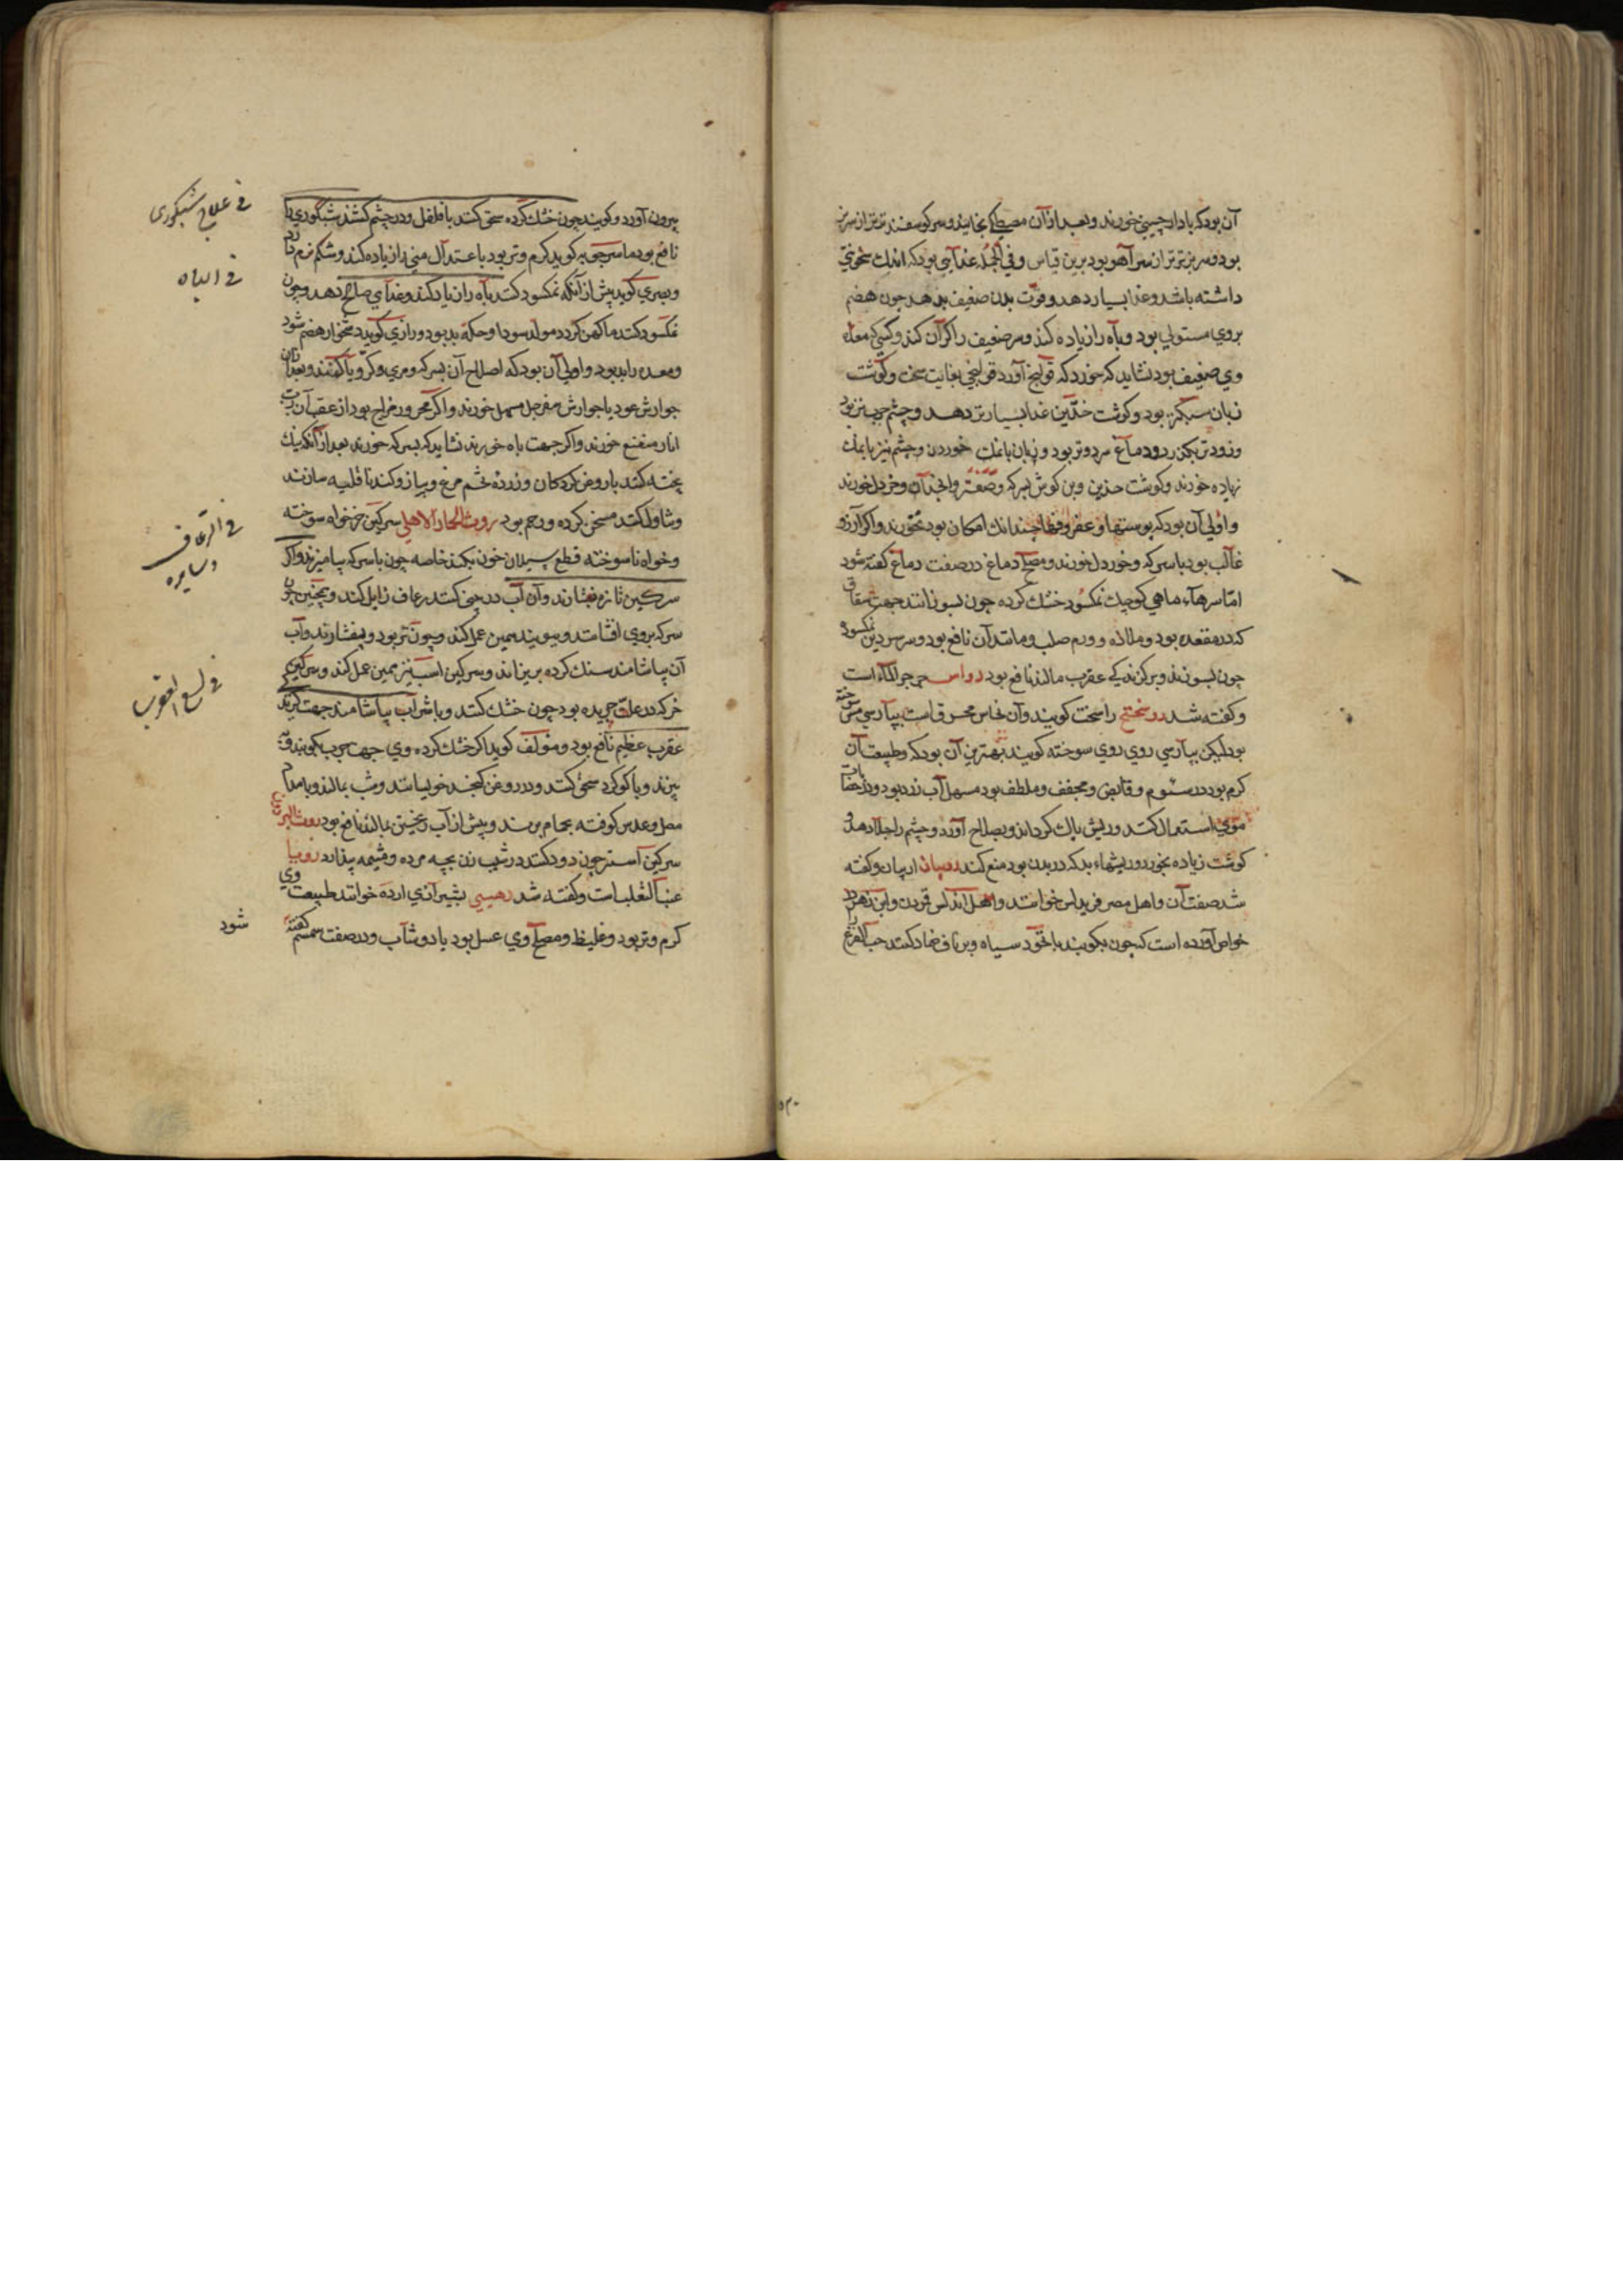 آن بود که با دارچینی خورند و بعد از آن مصطکی بخایند و سر گوسفند تر تر از سر بز
بود و سر بز تر تر از سر آهو بود برین قیاس و فی الجمله غذایی بود که اندک سخونتی
داشته باشد و غذا بسیار دهد و قوت بدن ضعیف بدهد چون هضم
بروی مستولی بود و باه را زیاده کند و سر ضعیف را گران کند و کسی که معده
وی ضعیف بود نشاید که خورد که قولنج آورد قولنجی بغایت سخت و گوشت
زبان سبکتر بود و گوشت خدین غذا بسیارتر دهد و چشم چرب تر بود
و زودتر بگذرد و دماغ سرد و تر بود و زبان با نمک خوردن و چشم نیز با نمک
زیاده خورند و گوشت خدین و بن گوش بسرکه و صعتر و انجدان و خردل خورند
و اولی آن بود که پوستها و غضروفها چندانک امکان بود نخورند و اگر آرزو
غالب بود با سرکه و خردل خورند و مصلح دماغ در صفت دماغ گفته شود
اما سرهاء ماهی کوچک نمکسود خشک کرده چون بسوزانند جهت شقاق
که در مقعده بود و ملازه و ورم صلب و مانند آن نافع بود و سر سردین نمکسود
چون بسوزند و بر گزندگی عقرب مالند نافع بود رواس حی جوالکاء است
و گفته شد روسختج راسخت گویند و آن نحاس محرق است بپارسی مس سوخته
بود لیکن بپارسی روی روی سوخته گویند بهترین آن بود که و طبیعت آن
گرم بود در سیوم و قابض و مجفف و ملطف بود مسهل آب زرد بود و در خضابات
موی استعمال کنند و ریش پاک گرداند و بصلاح آورد و چشم را جلا دهد و
گوشت زیاده بخورد و ریشهاء بد که در بدن بود منع کند روبیان اربیان و گفته
شد صفت آن و اهل مصر فریدس خوانند و اهل اندلس قمرون و ابن زهر در
خواص آورده است که چون بکوبند با نخود سیاه و بر ناف ضماد کنند حب القرع
بیرون آورد و گویند چون خشک کرده سحق کنند با فلفل و در چشم کشند شبکوری را
نافع بود ماسرجویه گوید گرم و تر بود باعتدال منی را زیاده کند و شکم نرم دارد
و بصری گوید پیش از آنکه نمکسود کنند باه را زیاد کند و غذای صالح دهد و چون
نمکسود کنند ما کهن گردد مولد سودا و حکه بد بود و رازی گوید دشخوار هضم شود
و معده را بد بود و اولی آن بود که اصلاح آن بسرکه و مری و کرویا کنند و بعد از آن
جوارش عود یا جوارش سفرجل مسهل خورند و اگر محرور مزاج بود از عقب آن رب
انار منعنع خورند و اگر جهت باه خورند نشاید که بسرکه خورند بعد از آنک نیک
پخته کنند با روغن گردکان و زرده تخم مرغ و پیاز و کند نا قلیه سازند
و تناول کنند مسخن گرده و رحم بود روث الحمار الاهلی سرگین خر خواه سوخته
و خواه ناسوخته قطع سیلان خون بکند خاصه چون با سرکه بیامیزند و اگر
سرگین تازه بفشارند و آن آب در بینی کنند رعاف زایل کند و همچنین چون
سرکه بروی افشانند و ببویند همین عمل کند و چون تر بود و بفشارند و آب
آن بیاشامند سنگ کرده بریزاند و سرگین اسب نیز همین عمل کند و سرگین
خر که در علف چریده بود چون خشک کنند و با شراب بیاشامند جهت گزیدگی
عقرب عظیم نافع بود و مولف گوید اگر خشک کرده وی جهت جرب بکوبند و
بپزند و با گوگرد سحق کنند و در روغن کنجد خویسانند و شب بمالند و بامداد
مصل و عدس کوفته بحمام برند و پیش از آب ریختن بمالند نافع بود روث البرذون
سرگین استر چون دود کنند در شیب زن بچه مرده و مشیمه بیندازد روبیا
عنب الثعلب است و گفته شد رهشی بشیرازی ارده خوانند طبیعت وی
گرم و تر بود و غلیظ و مصلح وی عسل بود یا دوشاب و در صفت سمسم گفته
شود
فی علاج شبکوری
فی الباه
فی الرعاف
و سایره
فی لسع العقرب